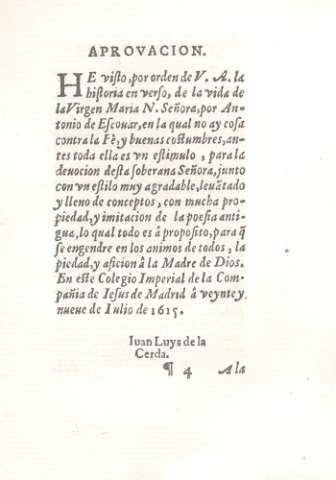 APROVACION.
HE visto, por orden de V. A. la
historia en verso, de la vida de
la Virgen Maria N. Señora, por An-
tonio de Escouar, en la qual no ay cosa
contra la Fè, y buenas costumbres, an-
tes toda ella es vn estimulo, para la
deuocion desta soberana Señora, junto
con vn estilo muy agradable, leuãtado
y lleno de conceptos, con mucha pro-
piedad, y imitacion de la poesia anti-
gua, lo qual todo es â proposito, para q̃
se engendre en los animos de todos, la
piedad, y aficion â la Madre de Dios.
En este Colegio Imperial de la Com-
pañia de Iesus de Madrid â veynte y
nueue de Iulio de 1615.
Iuan Luys de la
Cerda.
¶ 4 A la